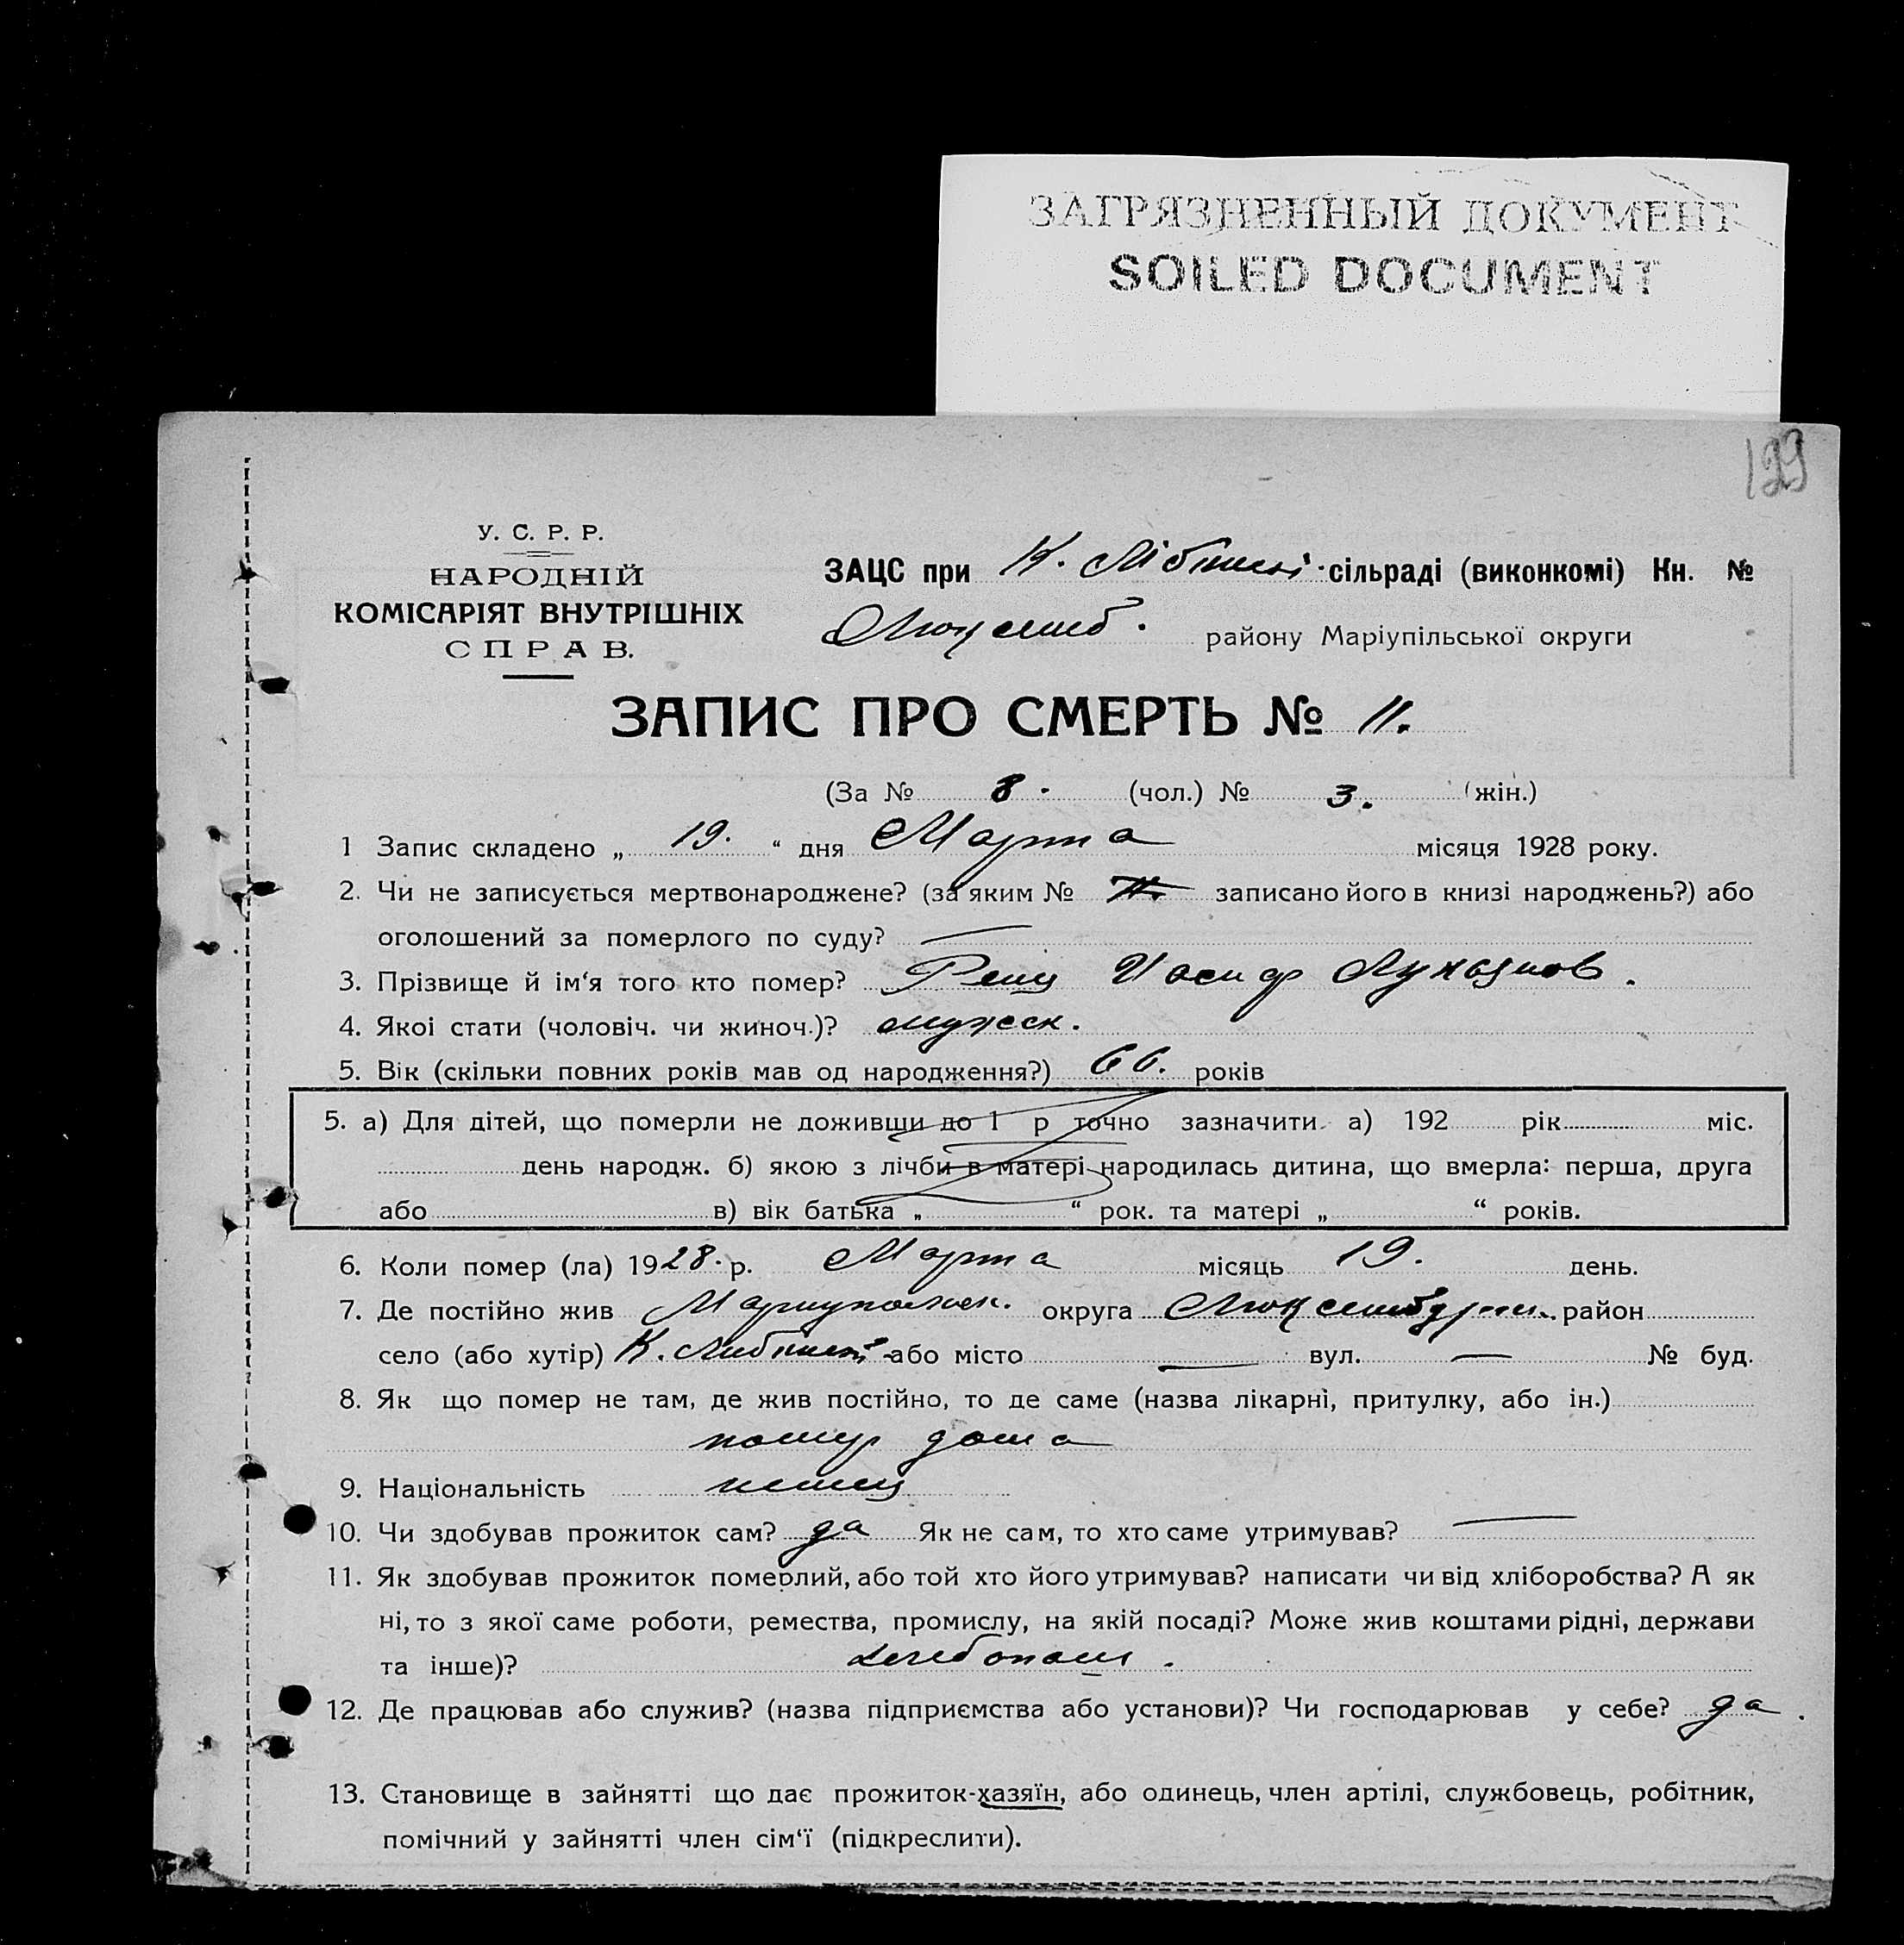 ЗАГРЯЗНЕННЫЙ ДОКУМЕНТ
SOILED DOCUMENT
129
У. С. Р. Р.
НАРОДНІЙ
КОМІСАРІЯТ ВНУТРІШНІХ
СПРАВ.
ЗАЦС при К. сільраді (виконкомі) Кн. №
Люксемб. району Маріупільської округи
ЗАПИС ПРО СМЕРТЬ № 11.
(За № 8. (чол.) № 3. (жін.)
1 Запис складено „ 19. “ дня Марта місяця 1928 року.
2. Чи не записується мертвонароджене? (за яким № записано його в книзі народжень?) або
оголошений за померлого по суду? —
3. Прізвище й ім‘я того кто помер? Иосиф
4. Якоі стати (чоловіч. чи жиноч.)? мужеск.
5. Вік (скільки повних років мав од народження?) 66. років
5. а) Для дітей, що померли не доживши до 1 р точно зазначити а) 192 рік міс.
день народж. б) якою з лічби в матері народилась дитина, що вмерла: перша, друга
або в) вік батька „ “ рок. та матері „ “ років.
6. Коли помер (ла) 1928. р. Марта місяць 19. день.
7. Де постійно жив Мариупольск. округа район
село (або хутір) К. або місто — вул. — № буд.
8. Як що помер не там, де жив постійно, то де саме (назва лікарні, притулку, або ін.)
помер дома
9. Національність немец
10. Чи здобував прожиток сам? да Як не сам, то хто саме утримував? —
11. Як здобував прожиток померлий, або той хто його утримував? написати чи від хліборобства? А як
ні, то з якої саме роботи, ремества, промислу, на якій посаді? Може жив коштами рідні, держави
та інше)? .
12. Де працював або служив? (назва підприємства або установи)? Чи господарював у себе? да.
13. Становище в зайнятті що дає прожиток-хазяїн, або одинець, член артілі, службовець, робітник,
помічний у зайнятті член сім‘ї (підкреслити).